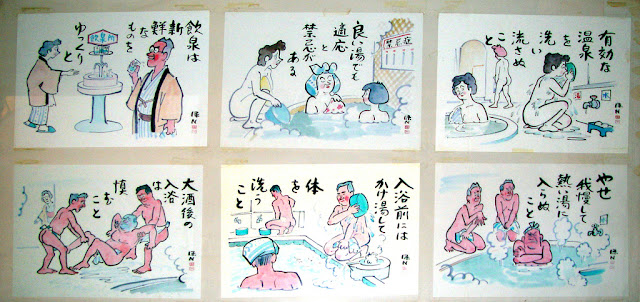 飲泉は
新鮮な
ものを
ゆっくり
と
飲泉所
良い湯でも
適応と
禁忌が
ある
禁忌症
有効な
温泉を
洗い
流さぬ
こと
湯
水
大酒後の
入浴は
慎む
こと
入浴前には
かけ湯して
体を
洗う
こと
やせ
我慢して
熱い湯に
入らぬ
こと